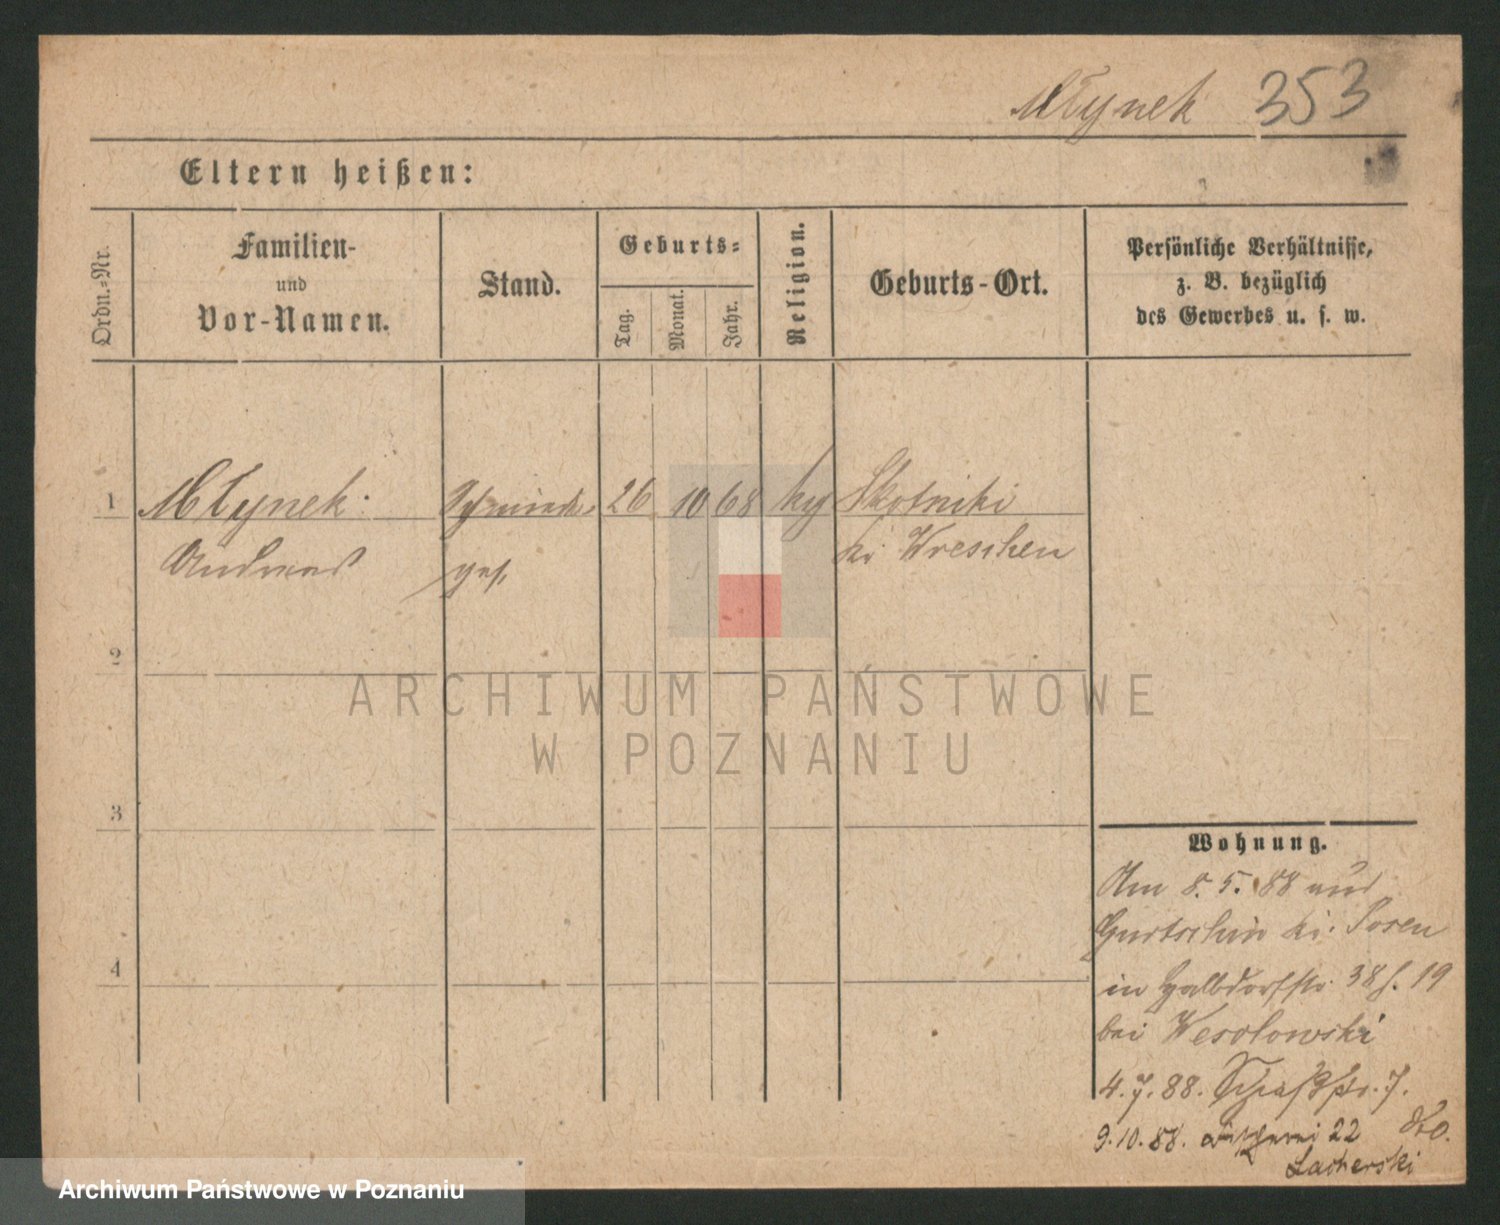 Młynek 353
Eltern heißen:
Ordn.-Nr.
Familien-
und
Vor-Namen.
Stand.
Geburts-
Tag.
Monat.
Jahr.
Religion.
Geburts-Ort.
Persönliche Verhältnisse,
z. B. bezüglich
des Gewerbes u. s. w.
1 Młynek Schmiede 26 10 68 Skotniki
Andreas ges. Kr. Wreschen
2
3
4
Wohnung.
Am 8.5.88 aus
Gurtschin Kr. Posen
in Halbdorfstr. 38 19
bei Wesolowski
4.7.88. 7.
9.10.88. 22
Lacherski
ARCHIWUM PAŃSTWOWE
W POZNANIU
Archiwum Państwowe w Poznaniu